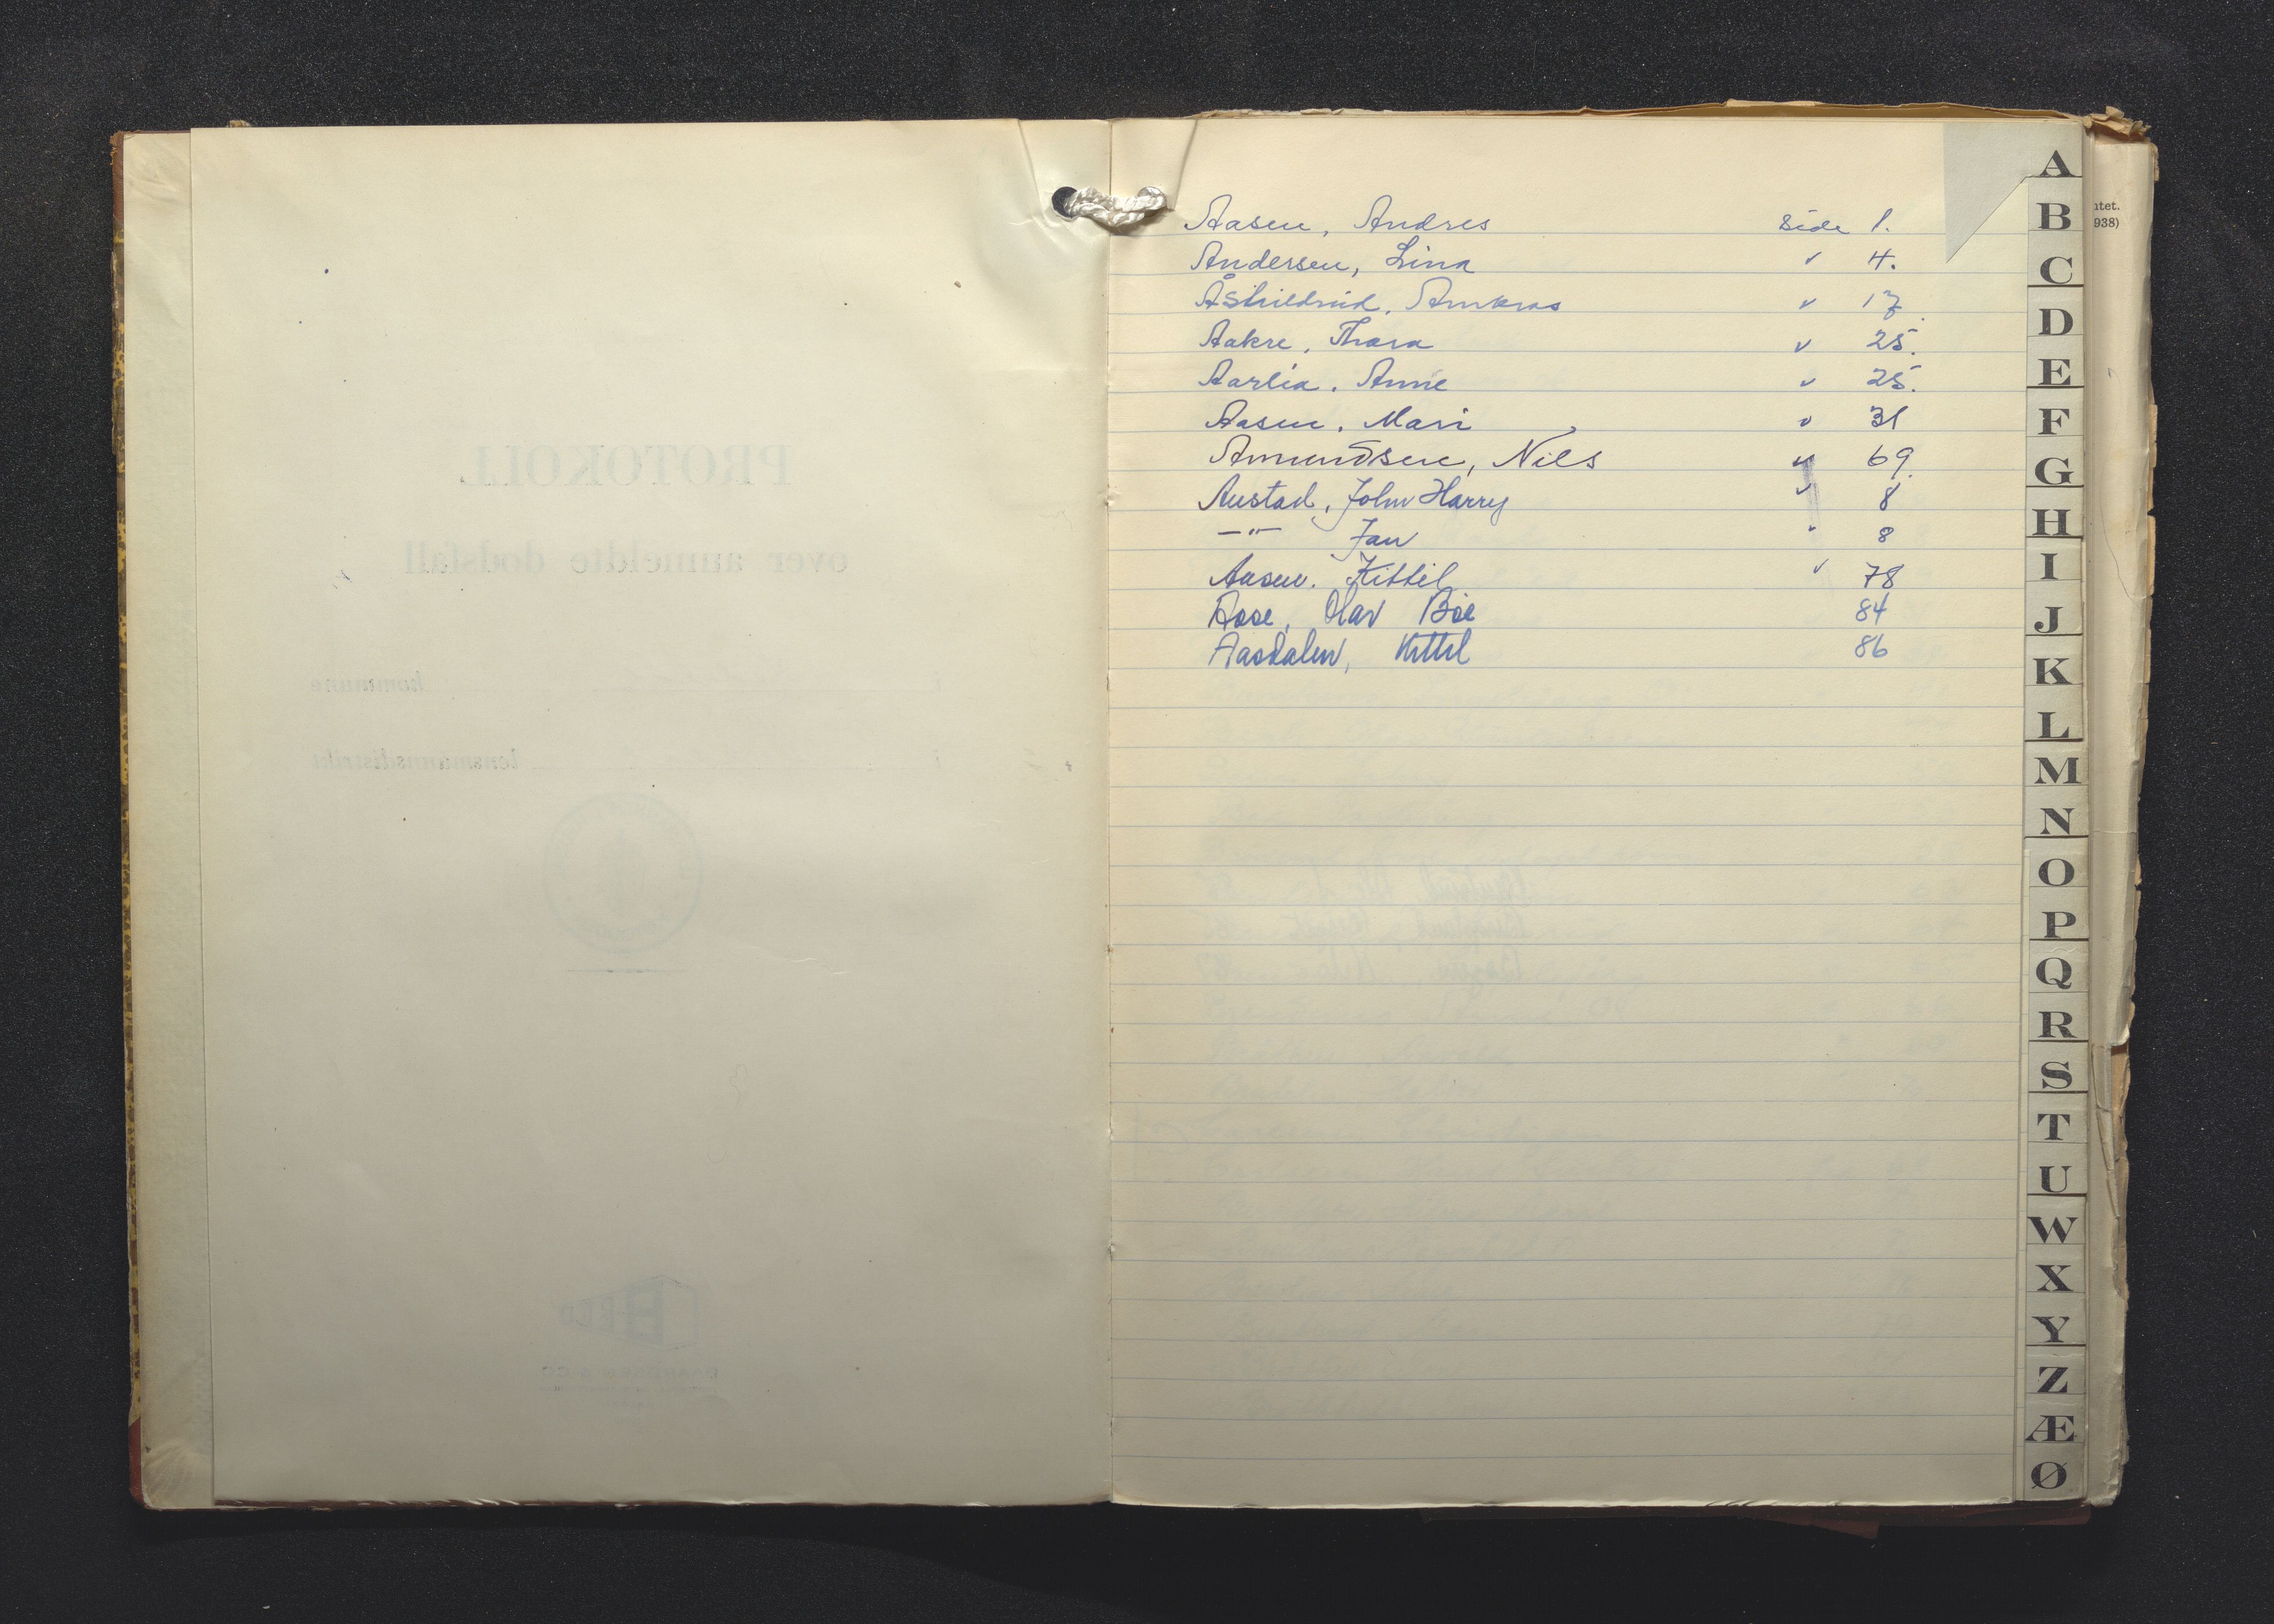 Aasen, Andres side 1.
Andersen, Lina " 4.
Åshildrud, Amkras " 17.
Aakre, Thora " 25.
Aarlia, Anne " 25.
Aasen, Mari " 31
Amundsen, Nils " 69.
Austad, John Harry " 8
—"— Jan " 8
Aasen, Kittil " 78
Aase, Olav Bøe 84
Aasdalen, Kittil 86
A
B
C
D
E
F
G
H
I
J
K
L
M
N
O
P
Q
R
S
T
U
W
X
Y
Z
Æ
Ø
ntet.
938)
PROTOKOLL
over anmeldte dødsfall
i kommune
i lensmannsdistrikt